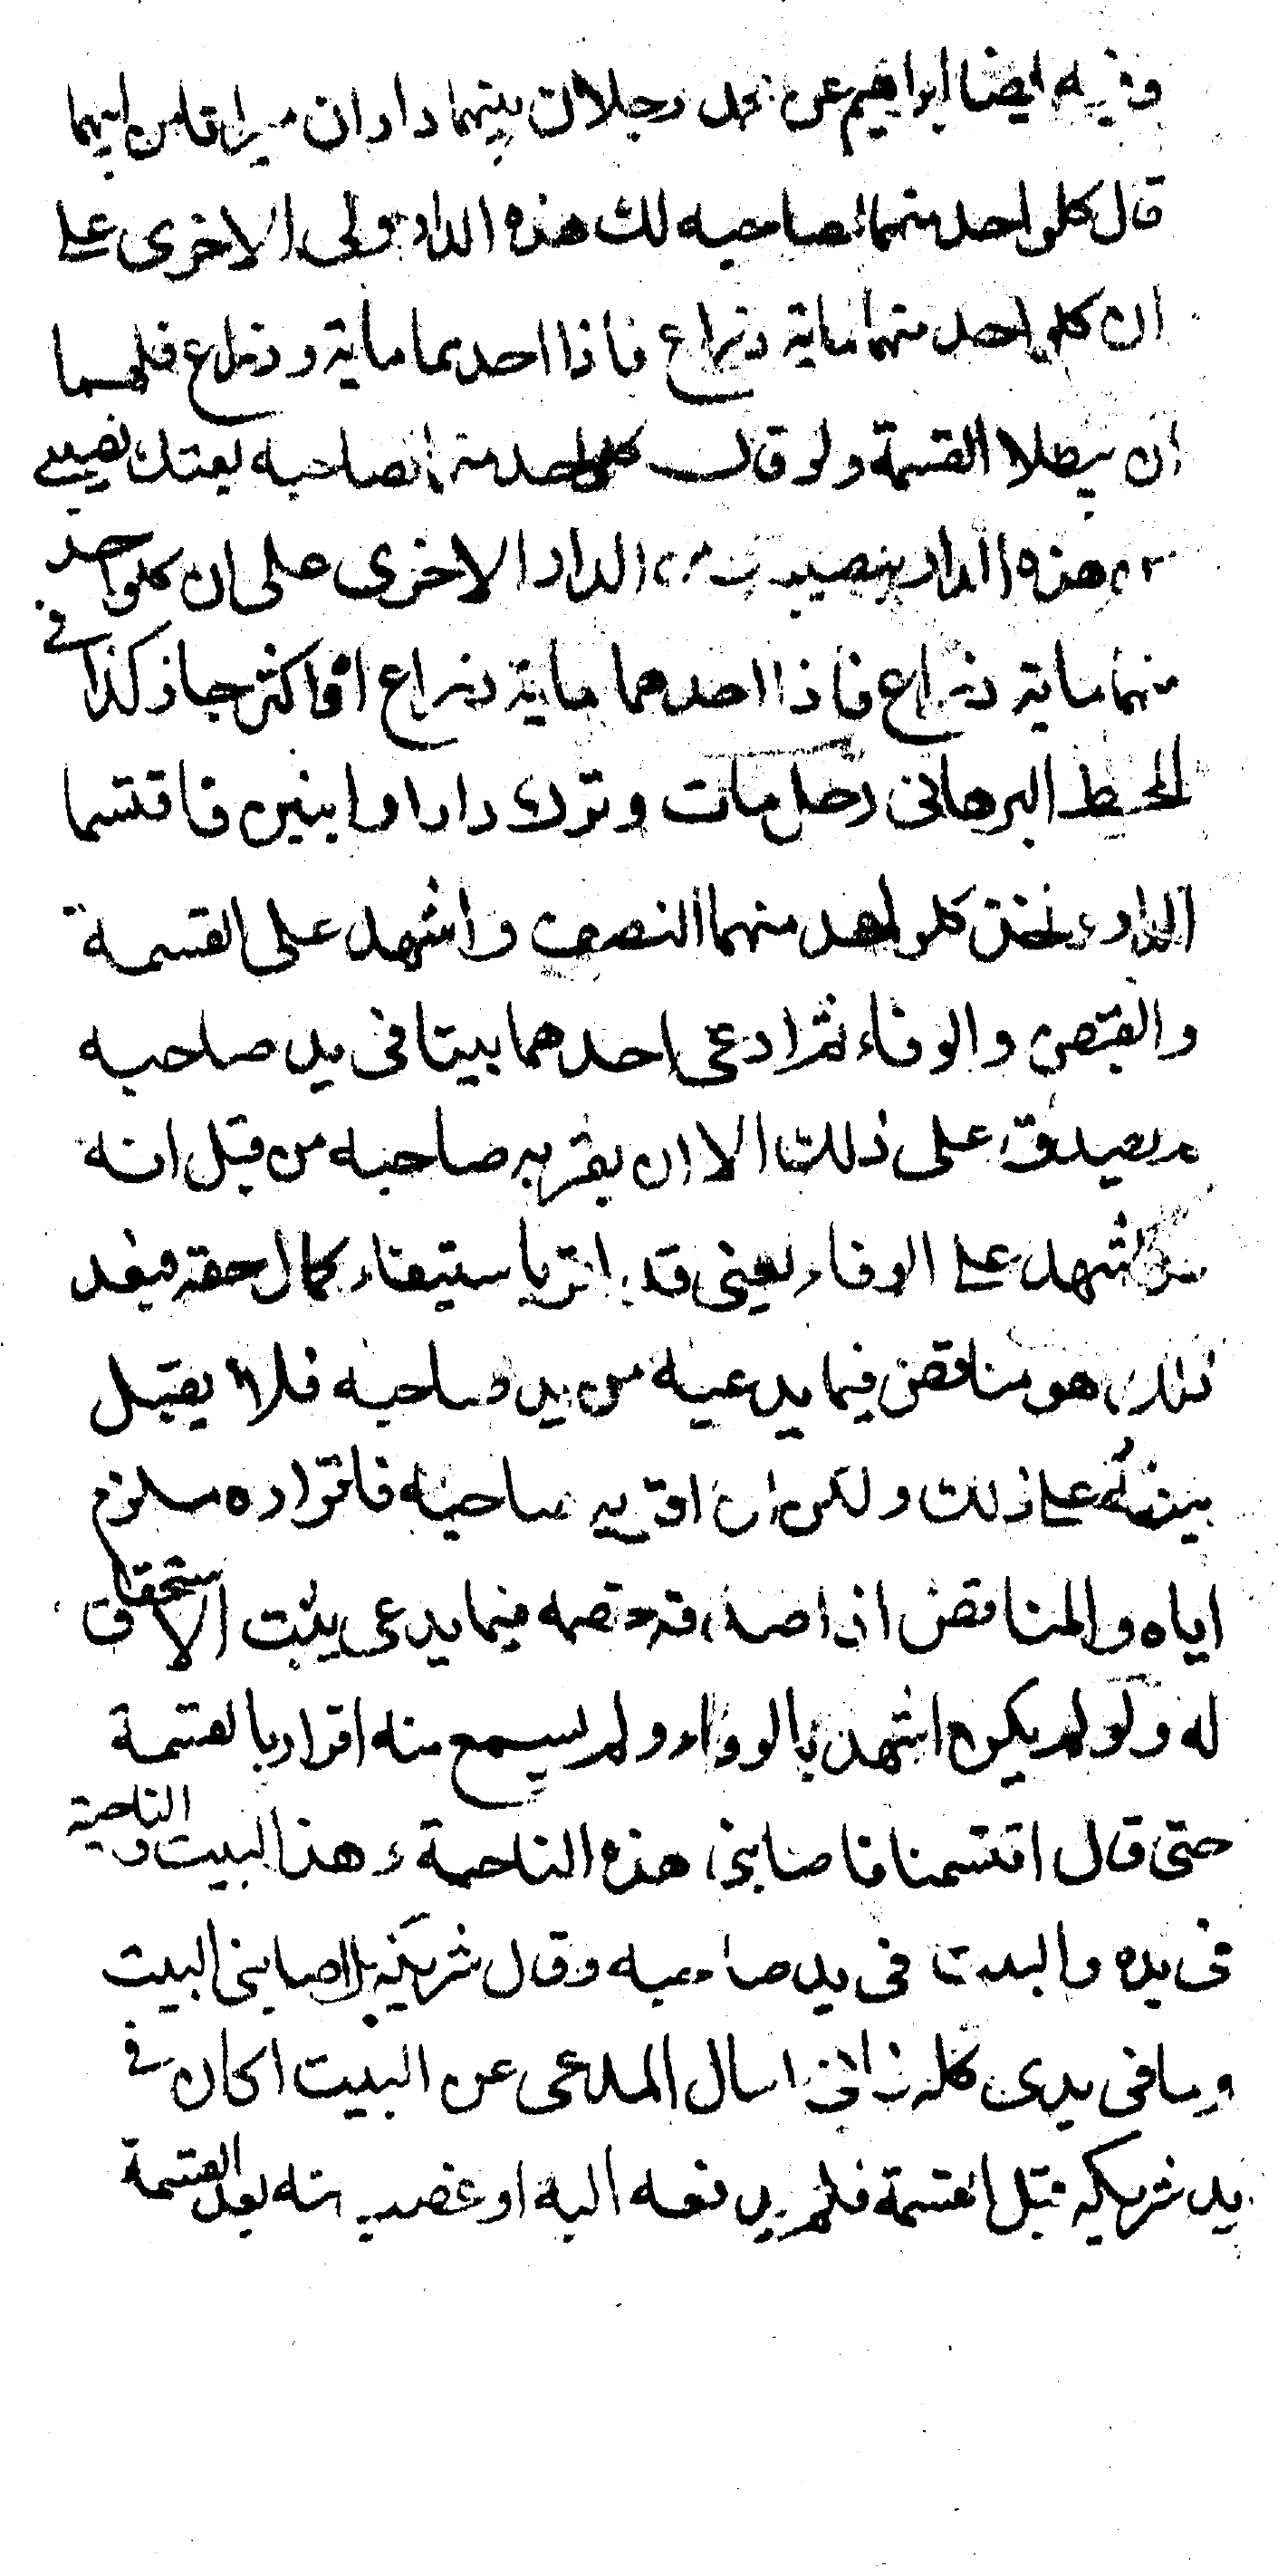 وفيه ايضا ابراهيم عن محمد رجلان بينهما داران ميراثا من ابيهما
قال كل واحد منهما لصاحبه لك هذه الدار ولى الاخرى على
ان كل واحد منهما ماية ذراع فاذا احديهما ماية وذراع فلهما
ان يبطلا القسمة ولو قال كل واحد منهما لصاحبه بعتك نصيبى
من هذه الدار بنصيبك من الدار الاخرى على ان كل واحد
منهما ماية ذراع فاذا احدهما ماية ذراع او اكثر جاز كذا فى
المحيط البرهانى رجل مات وترك دارا وابنين فاقتسما
الدار واخذ كل واحد منهما النصف واشهد على القسمة
والقبض والوفاء ثم ادعى احدهما بيتا فى يد صاحبه
لم يصدق على ذلك الا ان يقر به صاحبه من قبل انه
قد اشهد على الوفاء يعنى قد اقر باستيفاء كمال حقه فبعد
ذلك هو مناقض فيما يدعيه من يد صاحبه فلا يقبل
بينته على ذلك ولكن ان اقر به صاحبه فاقراره ملزم
اياه والمناقض اذا صدقه خصمه فيما يدعى يثبت الاستحقاق
له ولو لم يكن اشهد بالوفاء ولم يسمع منه اقرار بالقسمة
حتى قال اقتسمنا فاصابنى هذه الناحية وهذا البيت والناحية
فى يده والبيت فى يد صاحبه وقال شريكه بل اصابنى البيت
وما فى يدى كله فانى اسال المدعى عن البيت اكان فى
يد شريكه قبل القسمة فلم يدفعه اليه او غصبه منه بعد القسمة